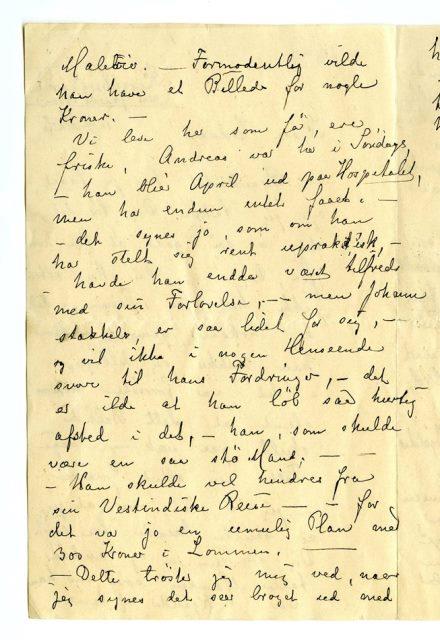 Maleri. — Formodentlig vilde
han have et Billede for nogle
Kroner. —
Vi leve her som før, ere
friske, Andreas var her i Søndags,
— han blir April ud paa Hospitalet,
men har endnu intet faaet. —
— det synes jo, som om han
har stelt sig rent upraktisk, —
havde han endda været tilfreds
med sin Forlovelse, — men Johanne
stakkels, er saa lidet for sig, —
og vil ikke i nogen Henseende
svare til hans Fordringer, — det
er ilde at han løb saa hurtig
afsted i det, — han, som skulde
være en saa stø Mand; — —
— Han skulde vel hindres fra
sin Vestindiske Reise — — for
det var jo en umulig Plan med
300 Kroner i Lommen. —
— Dette trøster jeg mig ved, naar
jeg synes det ser broget ud med